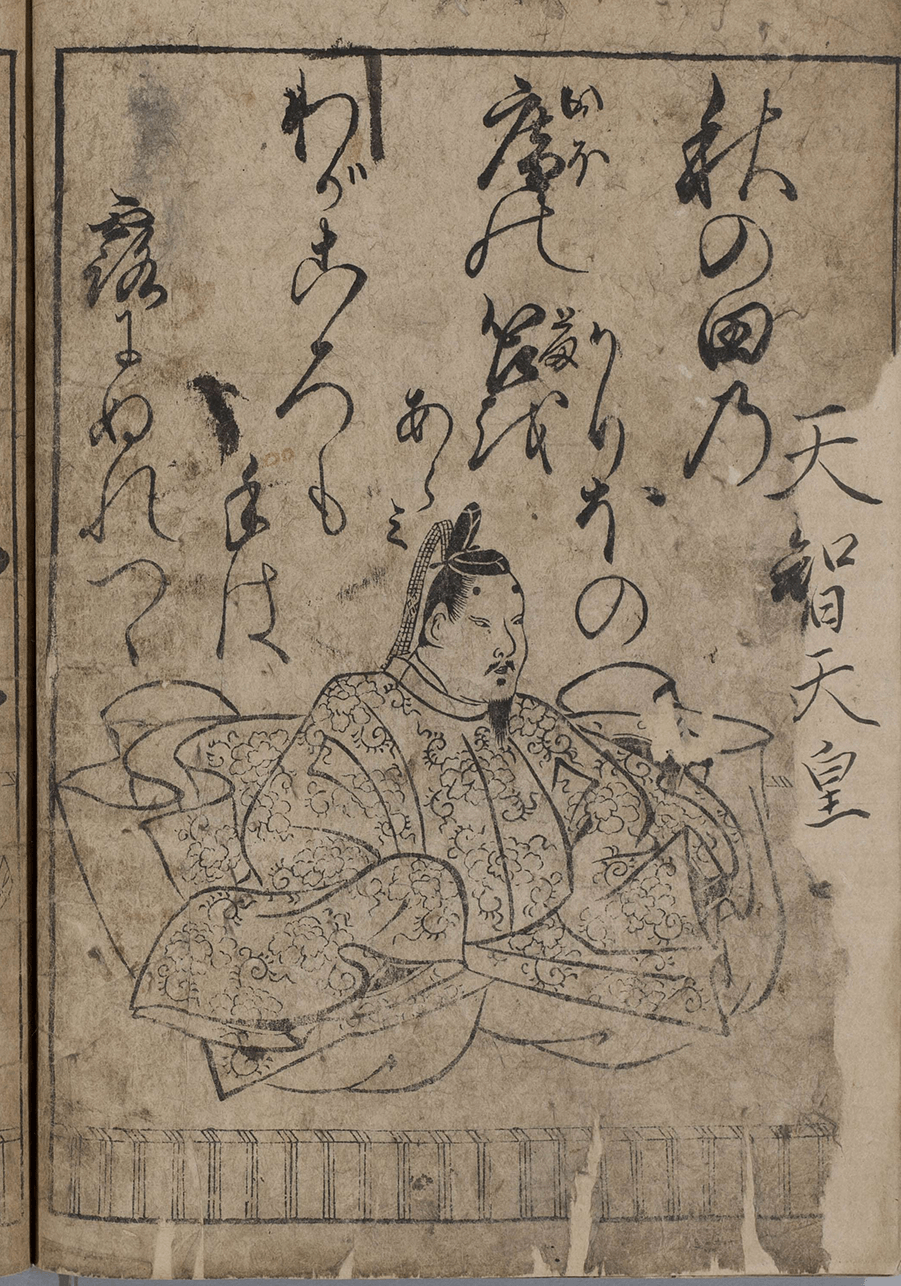 天智天皇
秋の田乃
かりほの
いほ
庵の苫を
あらミ
わがころも
手は
露にぬれつゝ